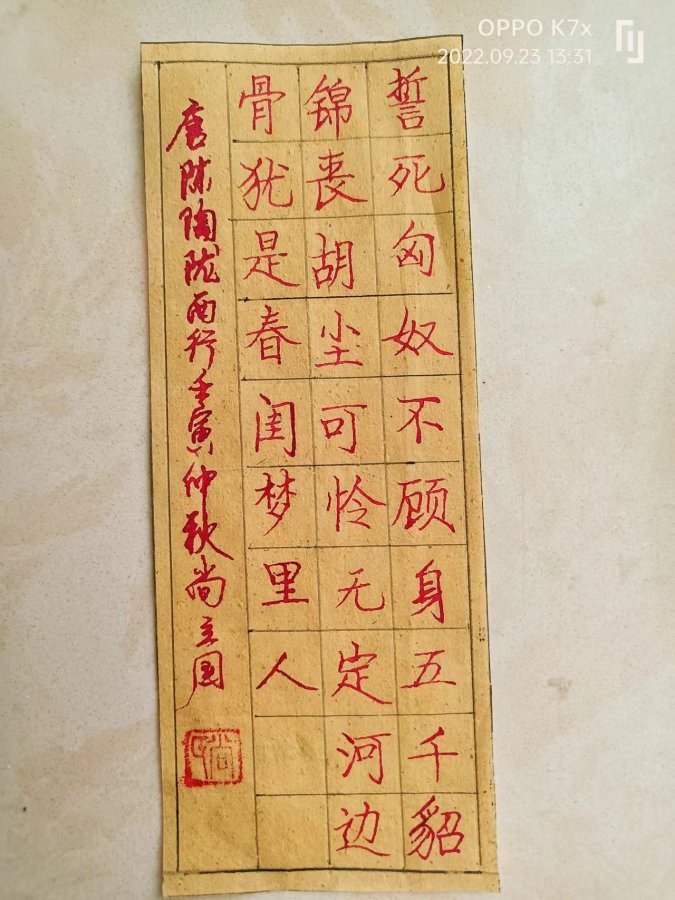 OPPO K7x
2022.09.23 13:31
誓死匈奴不顾身五千貂
锦丧胡尘可怜无定河边
骨犹是春闺梦里人
唐陈陶陇西行壬寅仲秋尚